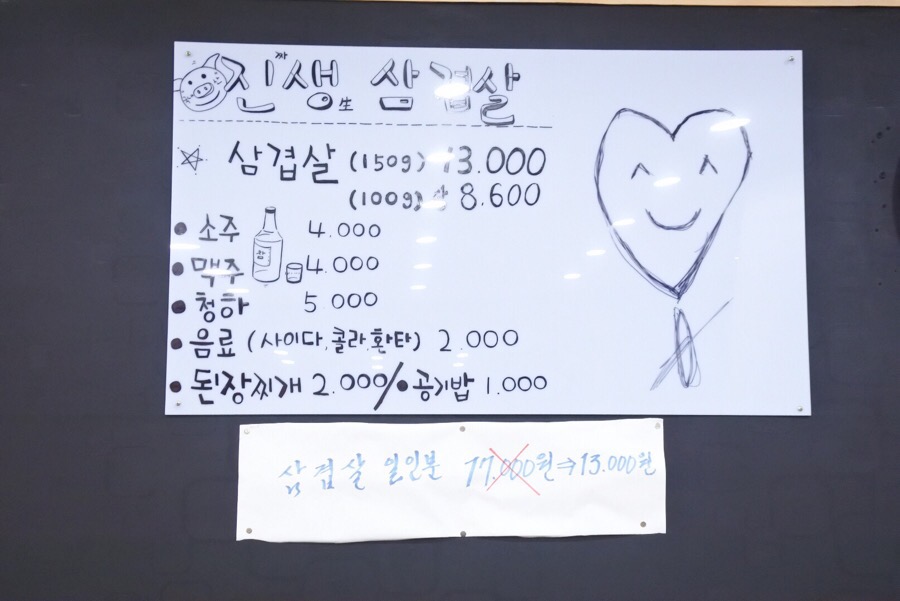 진짜生생 삼겹살
삼겹살 (150g) 13.000
(100g) 8.600
소주 4.000
맥주 4.000
청하 5.000
음료 (사이다.콜라.환타) 2.000
된장찌개 2.000/ 공기밥 1.000
삼겹살 일인분 17.000원⇒13.000원